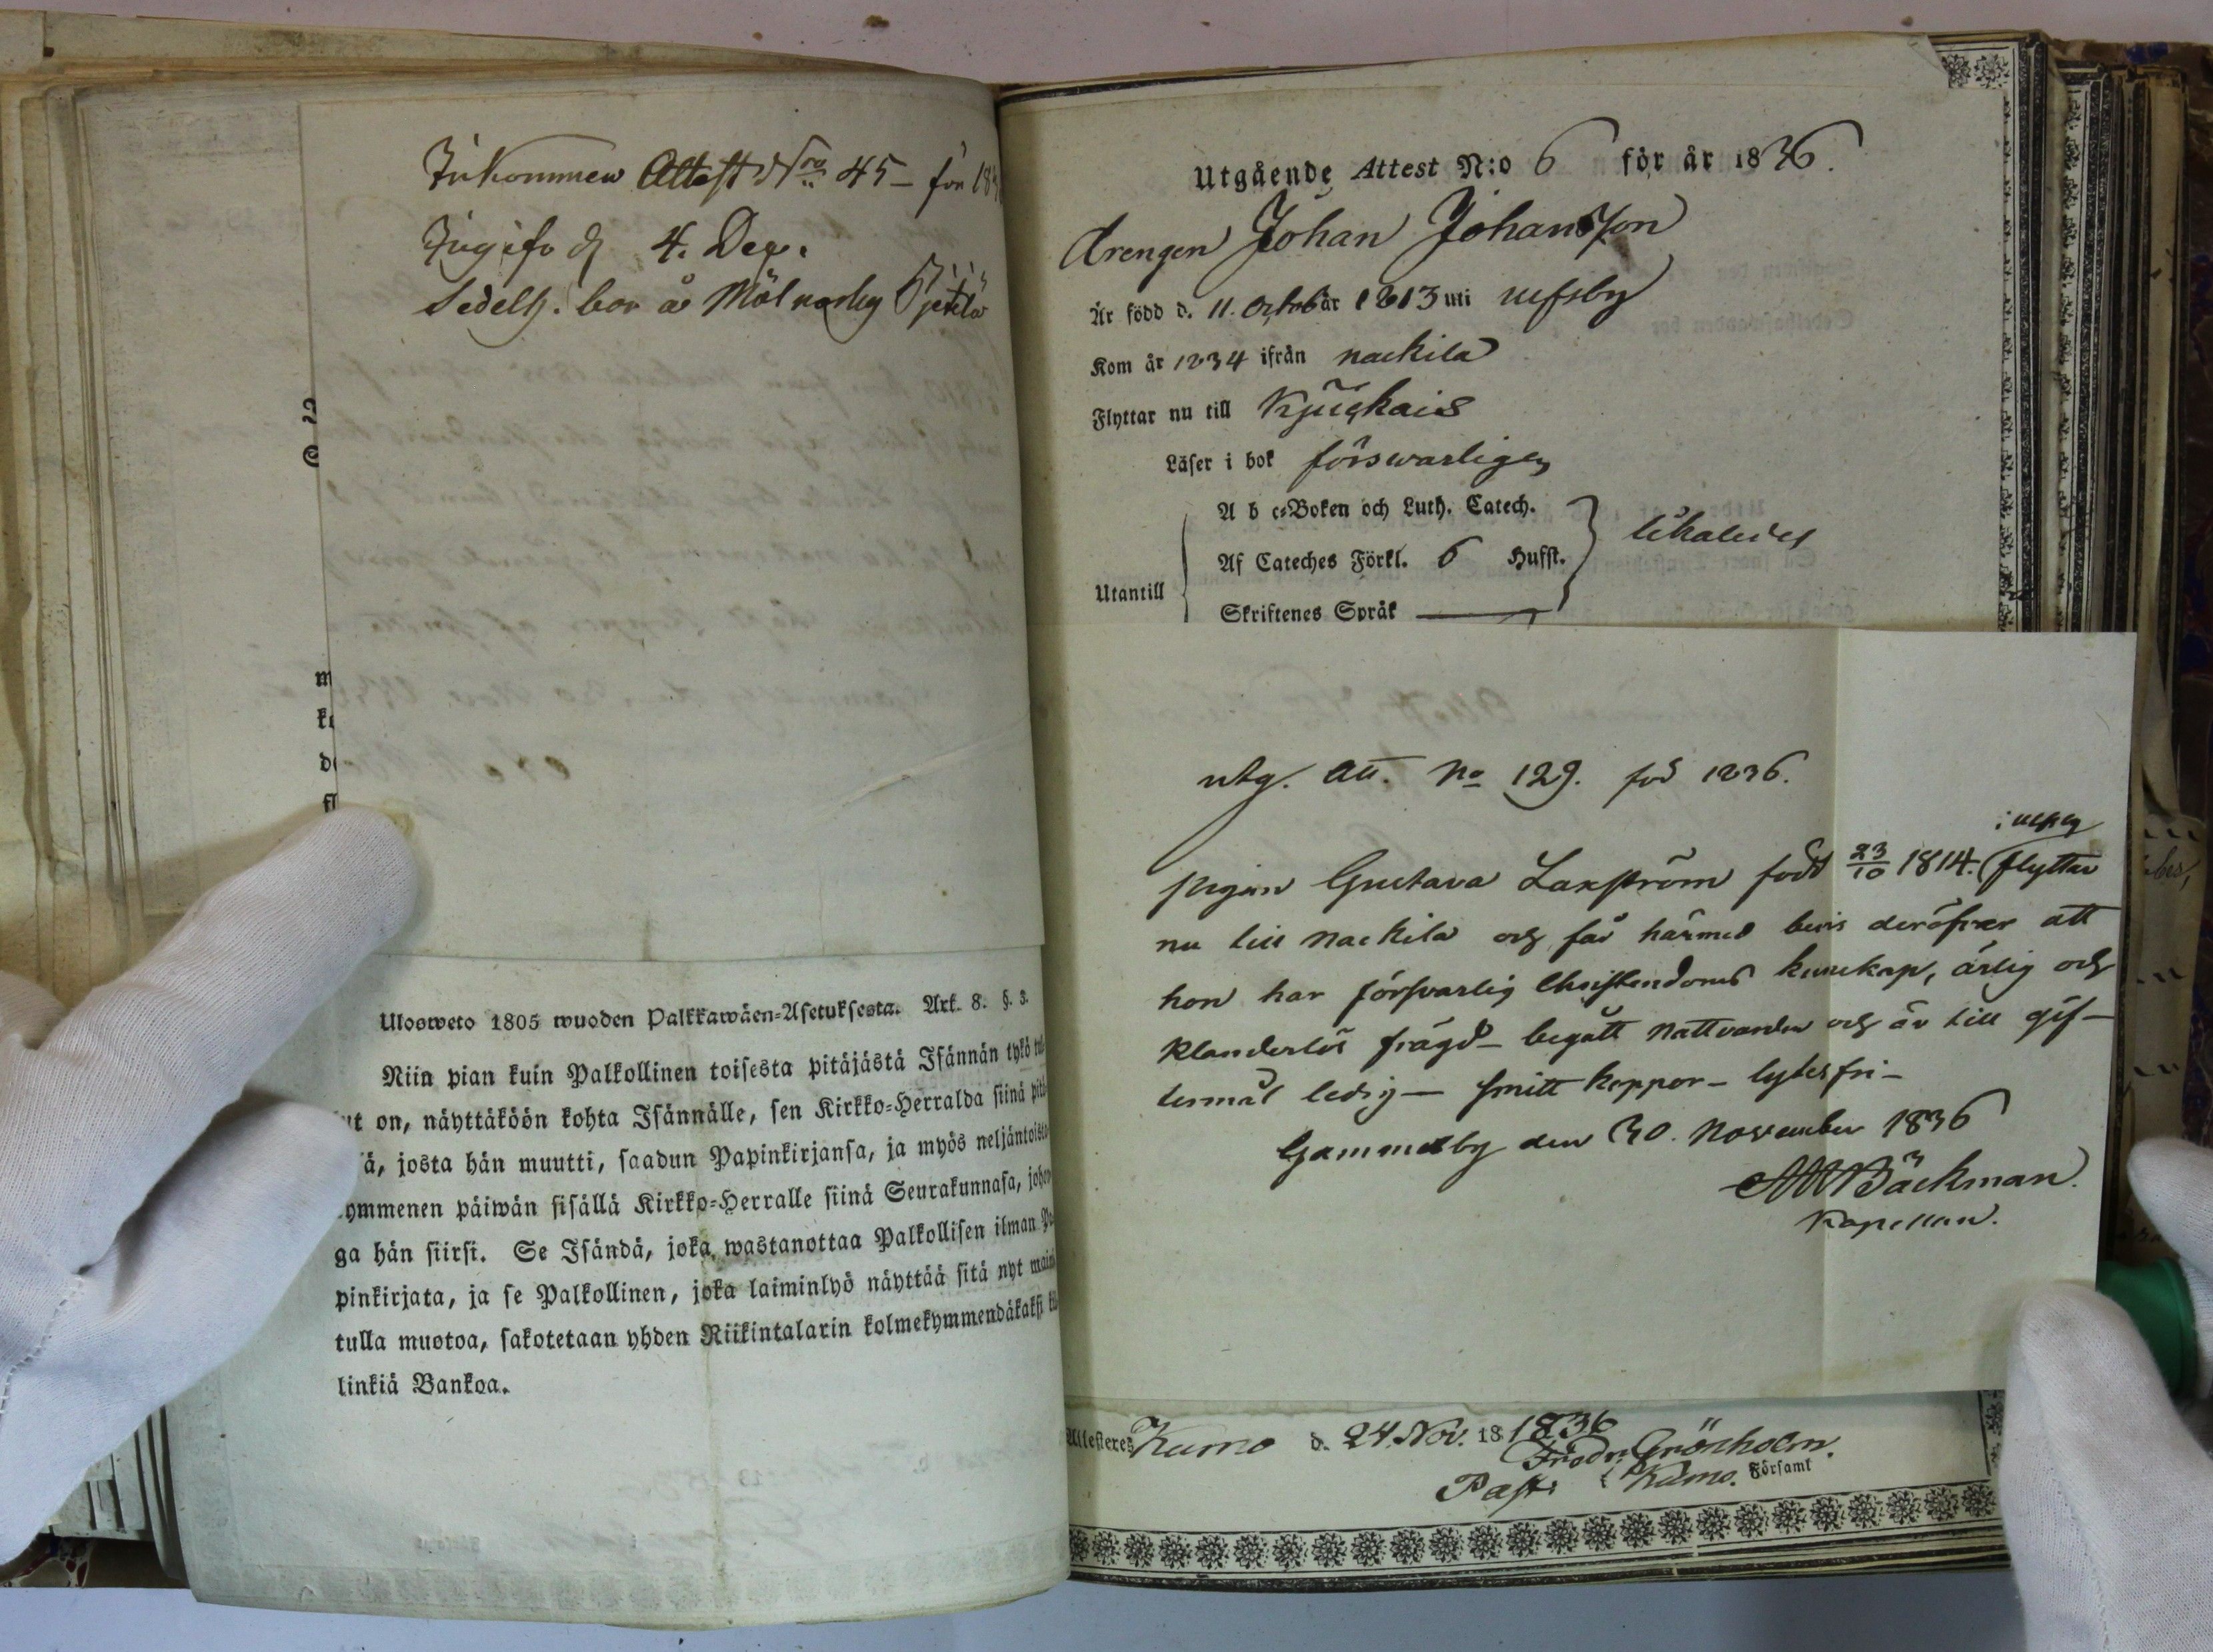 Inkommen Attest Nro 45 – för 183
Ingifv. d. 4. Dec.
Sedelh. bor å Mölnarby
m
d
Ulosweto 1805 wuoden Palkkawäen-Asetuksesta. Art. 8. §. 3.
Niin pian kuin Palkollinen toisesta pitäjästä Isännän tykö tul
ut on, näyttäköön kohta Isännälle, sen Kirkko-Herralda siinä pitä
ä, josta hän muutti, saadun Papinkirjansa, ja myös neljäntoista
ymmenen päiwän sisällä Kirkko-Herralle siinä Seurakunnasa, johon
ga hän siirsi. Se Isändä, joka wastanottaa Palkollisen ilman Pa
pinkirjata, ja se Palkollinen, joka laiminlyö näyttää sitä nyt maini
tulla muotoa, sakotetaan yhden Riikintalarin kolmekymmendäkaksi kil
linkiä Bankoa.
Utgående Attest N:o 6 för år 1836.
Drengen Johan Johansson
Är född d. 11. Octob år 1813 uti Ulfsby
Kom år 1834 ifrån Nackila
Flyttar nu till
Läser i bok försvarligen
Utantill
A b c-Boken och Luth. Catech.
Af Cateches Förkl. 6 Hufst.
Skriftenes Språk
likaledes
utg. Att. No 129. för 1836.
i Ulfsby
pigan Gustava Laxström född 23/10 1814. flyttar
nu till Nackila och får härmed bevis deröfver att
hon har försvarlig Christendoms kunskap, ärlig och
klanderlös frägd – begått Nattvarden och är till gif-
termål ledig – Smitt koppor – lytesfri –
Gammelby den 30. November 1836
Bäckman.
Kapellan.
Attesteres Kumo d. 24. Nov. 18 1836
Fredr. Grönholm.
Past. i Kumo. Församl